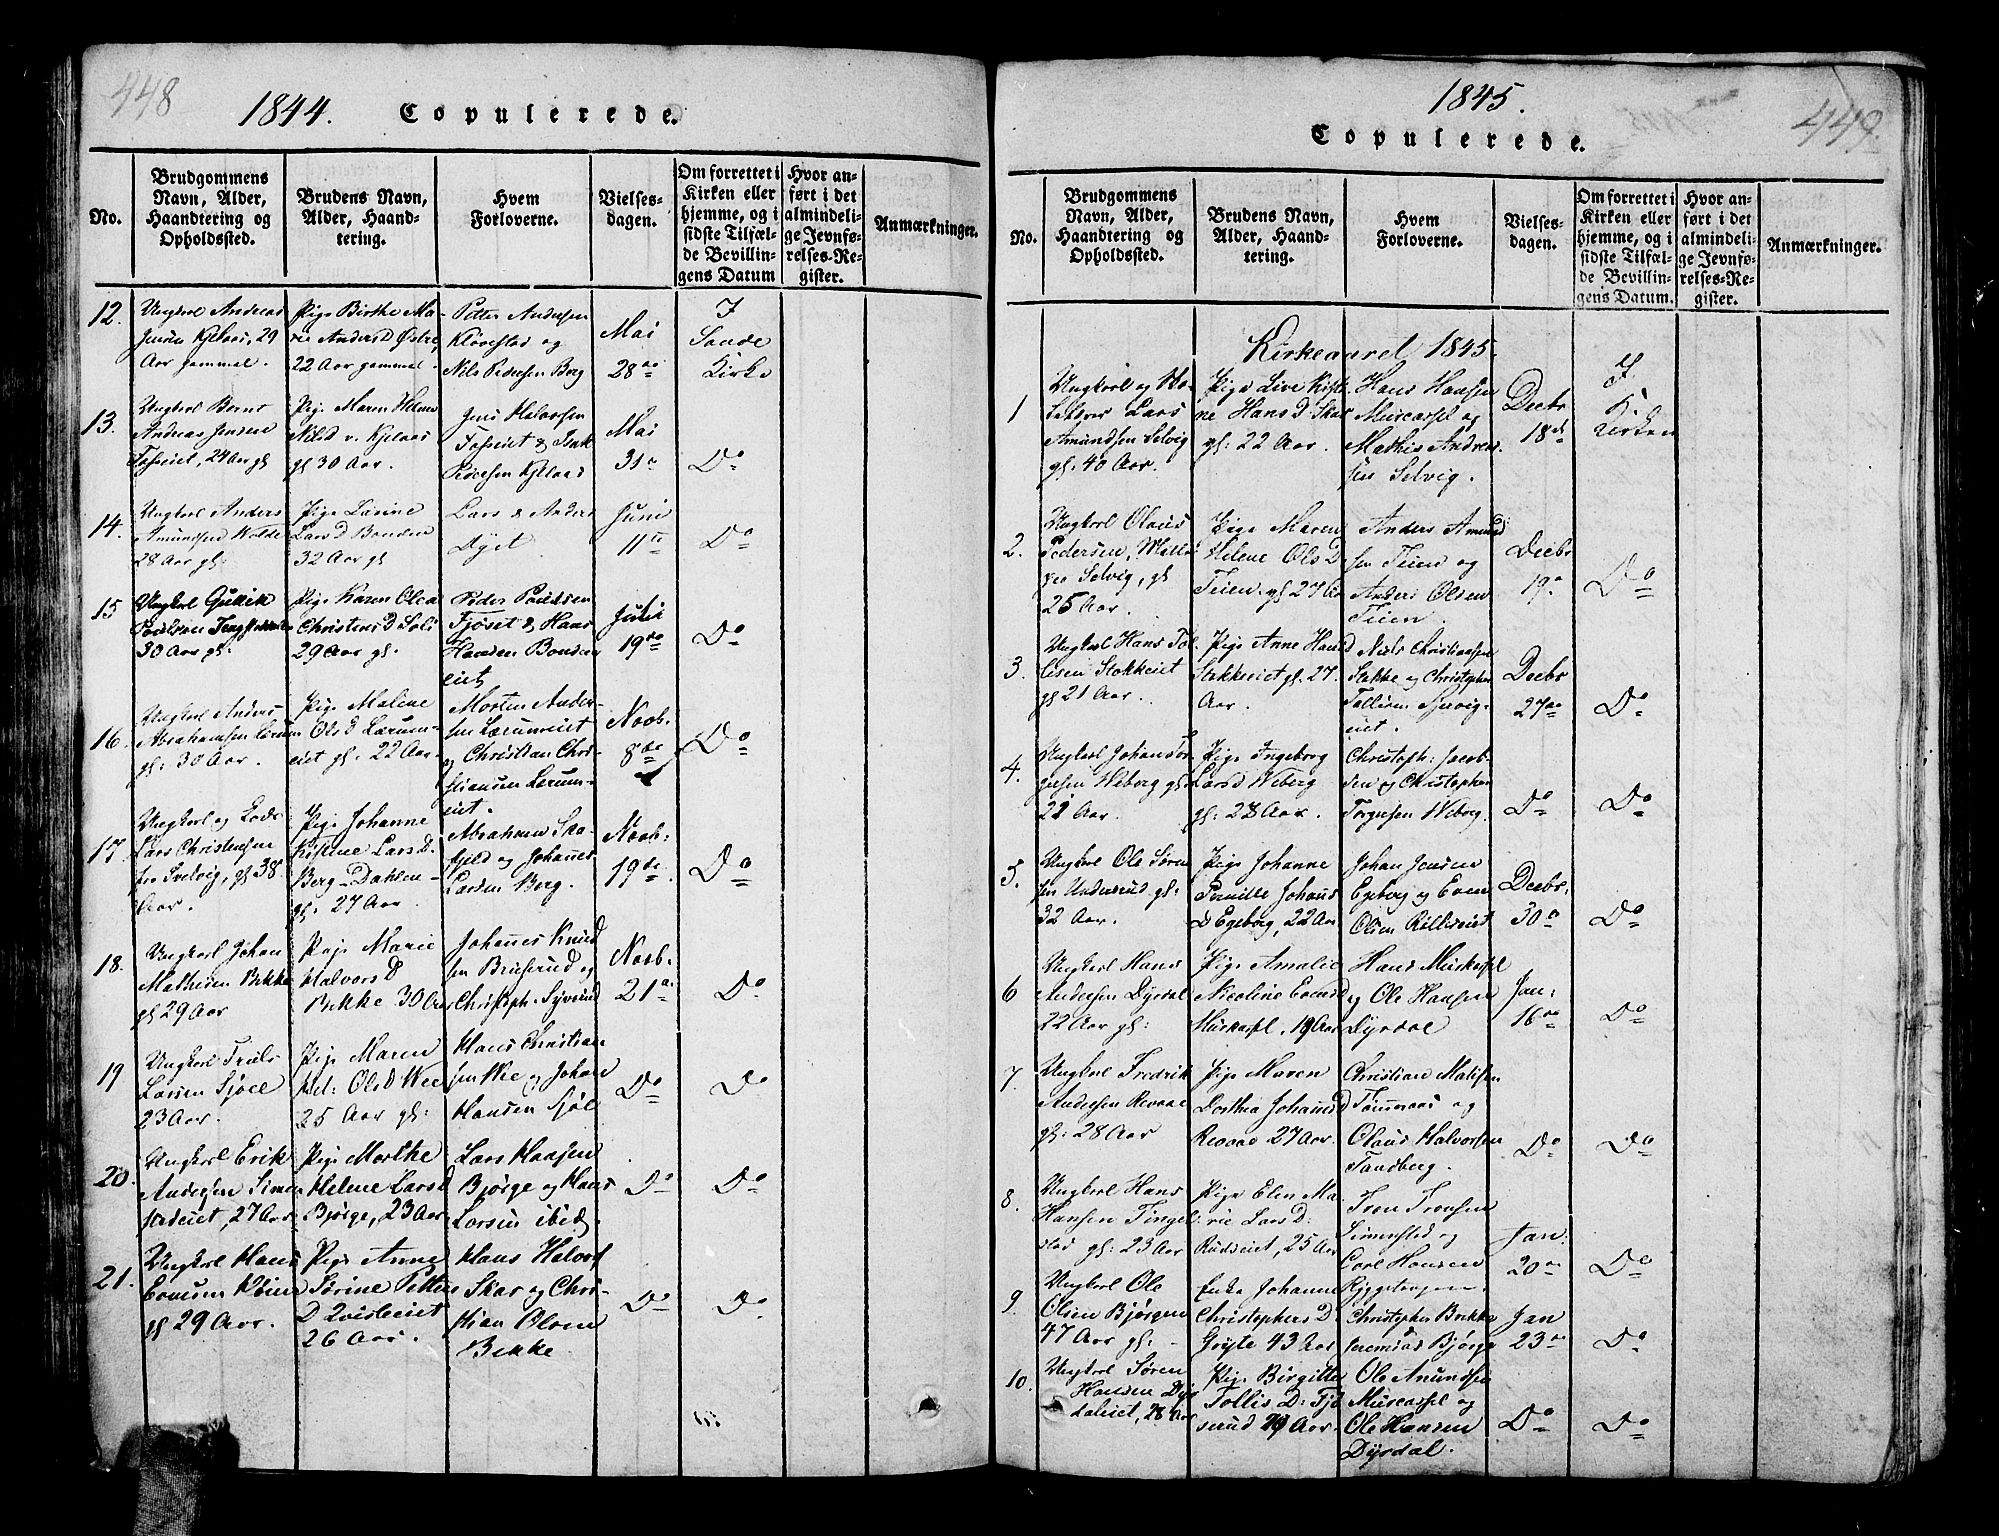 448
1844. Copulerede.
No.
Brudgommens
Navn, Alder,
Haandtering og
Opholdssted.
Brudens Navn,
Alder, Haand-
tering.
Hvem
Forloverne.
Vielses-
dagen.
Om forrettet i
Kirken eller
hjemme, og i
sidste Tilfæl-
de Bevillin-
gens Datum
Hvor an-
ført i det
almindeli-
ge Jevnfø-
relses-Re-
gister.
Anmærkninger.
12.
Ungkarl Andreas
Jensen Kjelaas, 29
Aar gammel.
Pige Birthe Ma-
rie Anders D Østre,
22 Aar gammel
Petter Andersen
Kløvestad og
Nils Pedersen Berg
Mai
28de
I
Sande
Kirke
13.
Ungkarl Bernt
Andreas Jensen
24 Aar gl
Pige Maren Helene
Nils D v. Kjelaas
gl 30 Aar.
Jens Halvorsen
Pedersen Kjelaas
Mai
31te
Do
14.
Ungkarl Anders
Amundsen
28 Aar gl:
Pige Larine
Lars D Bonden
32 Aar gl
Lars & Anders
Juni
11te
Do
15
Ungkarl Gulik
Poulsen
30 Aar gl.
Pige Karen Olea
Christens D
29 Aar gl.
Peder Poulsen
Fjøset & Hans
Hansen Bonden
eiet
Juli
19de
Do
16.
Ungkarl Anders
Abrahamsen Lerum
gl: 30 Aar.
Pige Malene
Ols D Lærum-
eiet gl: 22 Aar.
Morten Ander-
sen Lærumeiet
og Christian Chri-
stiansen Lerum-
eiet.
Novb.
8de
Do
17.
Ungkarl og Lods
Lars Christensen
fra Svelvig, gl 38
Aar.
Pige Johanne
Kristine Lars D.
Berg-Dahlen
gl: 27 Aar.
Abraham Ska-
fjeld og Johannes
Larsen Berg.
Novb:
19de.
Do
18.
Ungkarl Johan
Mathisen Bekke
gl 29 Aar
Pige Marie
Halvors D
Bekke 30 Aar
Johannes Knud
sen Bruserud og
Christoph.
Novb.
21de
Do
19
Ungkarl Truls
Larsen Sjøel
23 Aar.
Pige Maren
Hel: Ols D Wee
25 Aar gl:
Hans Christian
sen Wee og Johan
Hansen Sjøl
Do
Do
20.
Ungkarl Erik
Andersen Simen
stadeiet, 27 Aar
Pige Marthe
Helene Lars D
Bjørge, 23 Aar
Lars Haagsen
Bjørge og Hans
Larsen ibid.
Do
Do
21.
Ungkarl Hans
Evensen
gl 29 Aar.
Pige Anne
Sørine Petter
D
26 Aar.
Hans Halvors
Skar og Chri-
stian Olsen
Bekke
Do
Do
1845.
449.
Copulerede.
No.
Brudgommens
Navn, Alder,
Haandtering og
Opholdssted.
Brudens Navn,
Alder, Haand-
tering.
Hvem
Forloverne.
Vielses-
dagen.
Om forrettet i
Kirken eller
hjemme, og i
sidste Tilfæl-
de Bevillin-
gens Datum.
Hvor an-
ført i det
almindeli-
ge Jevnfø-
relses-Re-
gister.
Anmærkninger.
Kirkeaaret 1845.
1
Ungkarl og
Lars
Amundsen Selvig
gl: 40 Aar.
Pige Live Kisti-
ne Hans D Skar
gl: 22 Aar.
Hans Hansen
Mueraspl og
Mathis Andrea-
sen Selvig.
Decbr
18de
I
Kirken
2.
Ungkarl Olaus
Pedersen,
fra Selvig, gl
25 Aar.
Pige Maren
Helene Ols D
Teien. gl 27 Aar
Anders Amund
sen Teien og
Anders Olsen
Teien.
Decbr
19de
Do
3.
Ungkarl Hans Tol-
lesen Stokkeeiet
gl 21 Aar.
Pige Anne Hans D
Stokkeeiet gl. 27
Aar.
Niels Christiansen
Stokke og Christopher
Tollesen
eiet.
Decbr
27de
Do
4.
Ungkarl Johan Tor
gersen Weberg gl
22 Aar.
Pige Ingeborg
Lars D Weberg
gl: 28 Aar.
Christoph: Jacob-
sen og Christopher
Torgersen Weberg.
Do
Do
5.
Ungkarl Ole Søren
sen Undersrud gl:
32 Aar.
Pige Johanne
Pernille Johans
D Egeberg, 22 Aar
Johan Jensen
Egeberg og Even
Olsen
Decbr.
30te
Do
6
Ungkarl Hans
Andersen Dyrdal
22 Aar gl:
Pige Amalie
Nicoline Evens D
19 Aar
Hans
og Ole Hansen
Dyrdal
Jan:
16de
Do
7.
Ungkarl Fredrik
Andersen Revaae
gl: 28 Aar
Pige Maren
Dorthea Johans D
Revaae 27 Aar.
Christian Matisen
Tømmeraas og
Olaus Halvorsen
Tandberg.
Do
Do
8.
Ungkarl Hans
Hansen Tingel
stad gl: 23 Aar
Pige Elen Ma-
rie Lars D:
Rudseiet, 25 Aar
Iver Iversen
Simenstad og
Carl Hansen
Jan:
20de
Do
9.
Ungkarl Ole
Olsen Bjørgen
47 Aar gl: -
Enke Johanne
Christophers D
Grøte 43 Aar
Christopher Bekke
Bjørge
Jan
23de
Do
10.
Ungkarl Søren
Hansen Dyr
daleiet, 28 Aar
Pige Birgitte
Tollis D:
serud 29 Aar.
Ole Amundsen
og
Ole Hansen
Dyrdal.
Do
Do